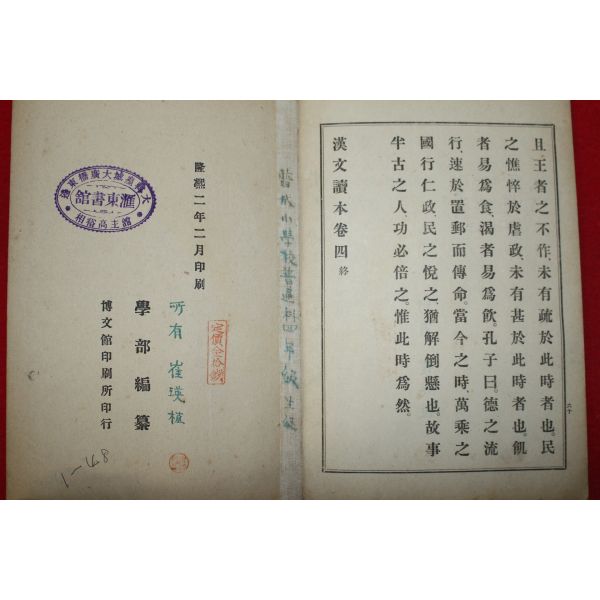 且王者之不作、未有疏於此時者也。民
之憔悴於虐政、未有甚於此時者也。飢
者易爲食、渴者易爲飮。孔子曰、德之流
行、速於置郵而傳命。當今之時、萬乘之
國行仁政、民之悅之、猶解倒懸也。故事
半古之人、功必倍之、惟此時爲然。
漢文讀本卷四 終
六十
小學校普通科四年級生
隆熙二年二月印刷
定價金拾錢
所有 崔瑛植
學部編纂
博文館印刷所印行
滙東書館
館主高裕相
1-168